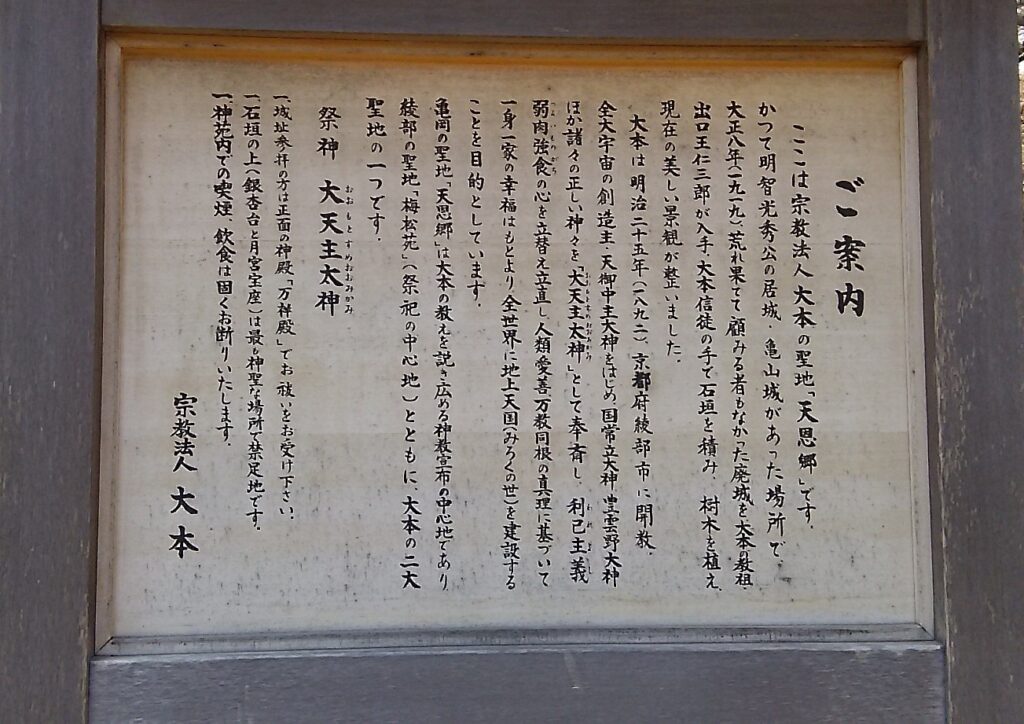 ご案内
ここは宗教法人大本の聖地「天恩郷」です。
かつて明智光秀公の居城・亀山城があった場所で、
大正八年(一九一九)荒れ果てて顧みる者もなかった廃城を大本の教祖・
出口王仁三郎が入手、大本信徒の手で石垣を積み、樹木を植え、
現在の美しい景観が整いました。
大本は明治二十五年(一八九二)、京都府綾部市に開教。
全大宇宙の創造主・天御中主大神をはじめ、国常立大神、豊雲野大神
ほか諸々の正しい神々を「大天主太神」として奉斎し、利己主義
弱肉強食の心を立替え立直し、人類愛善・万教同根の真理に基づいて
一身一家の幸福はもとより、全世界に地上天国(みろくの世)を建設する
ことを目的としています。
亀岡の聖地「天恩郷」は大本の教えを説き広める神教宣布の中心地であり、
綾部の聖地「梅松苑」(祭祀の中心地)とともに、大本の二大
聖地の一つです。
祭神 大天主太神
おおもとすめおおみかみ
一、城址参拝の方は正面の神殿「万祥殿」でお祓いをお受け下さい。
一、石垣の上(銀杏台と月宮宝座)は最も神聖な場所で禁足地です。
一、神苑内での喫煙、飲食は固くお断りいたします。
宗教法人 大本